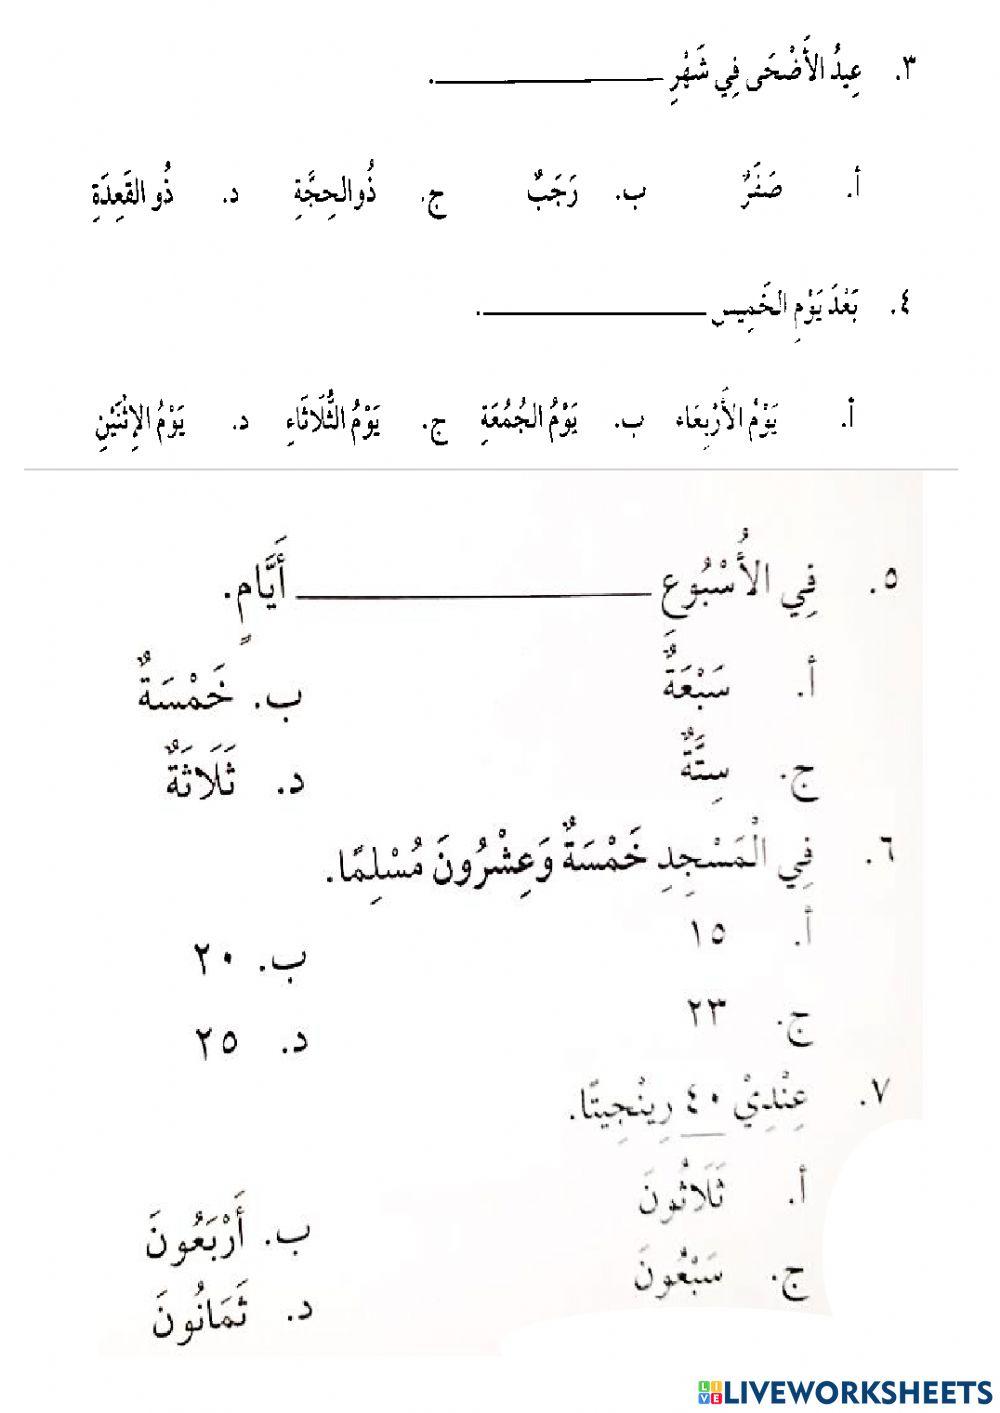 ٣. عِيدُ الأَضْحَى فِي شَهْرِ ______.
أ. صَفَرٌ ب. رَجَبٌ ج. ذُو الحِجَّةِ د. ذُو القَعِدَةِ
٤. بَعْدَ يَوْمِ الخَمِيسِ ______.
أ. يَوْمُ الأَرْبِعَاء ب. يَوْمُ الجُمُعَةِ ج. يَوْمُ الثُّلَاثَاءِ د. يَوْمُ الإِثْنَيْنِ
٥. فِي الأُسْبُوعِ ______ أَيَّامٍ.
أ. سَبْعَةٌ ب. خَمْسَةٌ
ج. سِتَّةٌ د. ثَلَاثَةٌ
٦. فِي الْمَسْجِدِ خَمْسَةٌ وَعِشْرُونَ مُسْلِمًا.
أ. ١٥ ب. ٢٠
ج. ٢٣ د. ٢٥
٧. عِنْدِيْ ٤٠ رِينْجِيتًا.
أ. ثَلَاثُونَ ب. أَرْبَعُونَ
ج. سَبْعُونَ د. ثَمَانُونَ
LIVEWORKSHEETS